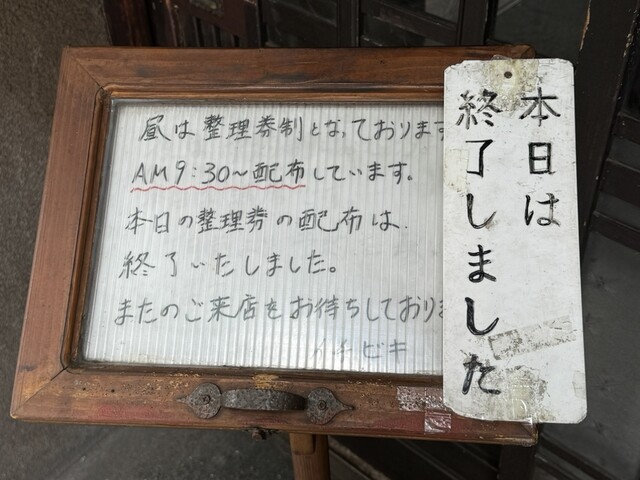 昼は整理券制となっております
AM9:30〜配布しています。
本日の整理券の配布は
終了いたしました。
またのご来店をお待ちしており
イチビキ
本日は
終了しました